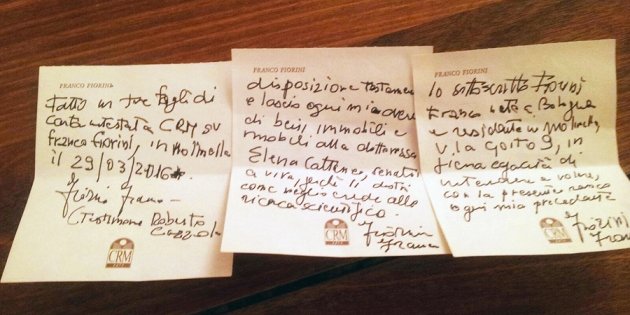 FRANCO FIORINI
Fatto in tre fogli di
carta intestata CRM su
Franco Fiorini, in Molinella
il 29/03/2016.
Fiorini Franco
(Testimone Roberto
CRM
FRANCO FIORINI
disposizione testamen
e lascio ogni mio avere
di beni, immobili e
mobili alla dottoressa
Elena Cattaneo, senat
a vita, perchè li destini
come meglio crede alla
ricerca scientifico.
Fiorini
Franco
CRM
FRANCO FIORINI
Io sottoscritto Fiorini
Franco nato a Bologna
e residente in Molinella,
V. la Goito 9, in
piena capacità di
intendere e volere,
con la presente revoco
ogni mia precedente
Fiorini
Franco
CRM